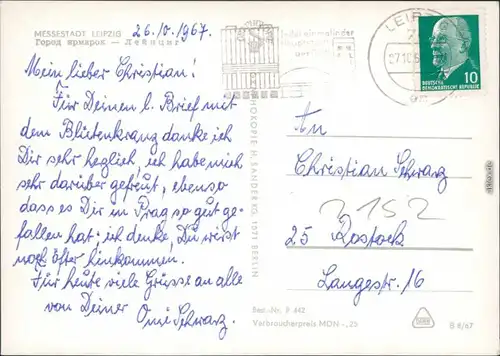 MESSESTADT LEIPZIG
Город ярмарок — Лейпциг
26.10.1967.
Mein lieber Christian!
Für Deinen l. Brief mit
dem Blütenkranz danke ich
Dir sehr herzlich, ich habe mich
sehr darüber gefreut, ebenso
dass es Dir in Prag so gut ge-
fallen hat; ich denke, Du wirst
noch öfter hinkommen.
Für heute viele Grüsse an alle
von Deiner Omi Schwarz.
LEIPZ
DEUTSCHE
DEMOKRATISCHE REPUBLIK
10
An
Christian Schwarz
3152
25 Rostock
Langestr. 16
Best.-Nr. B 642
Verbraucherpreis MDN -,25
B 8/67